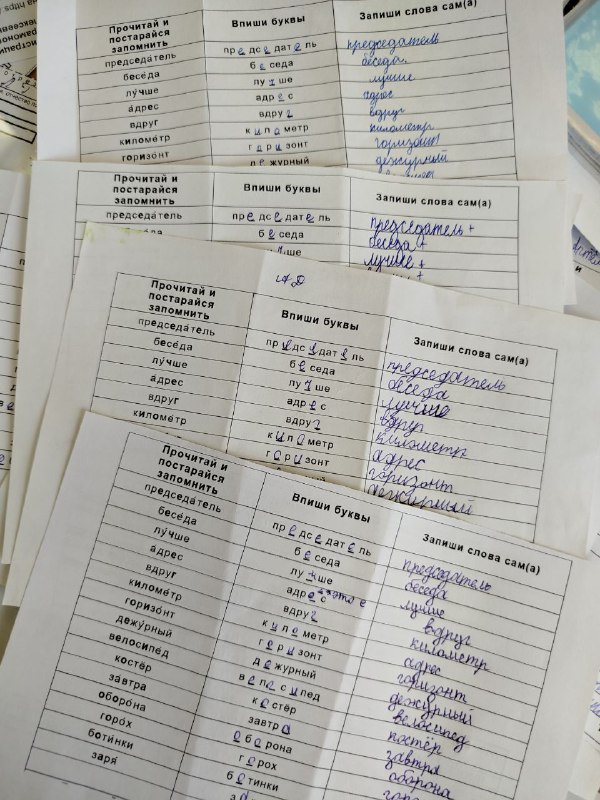 Прочитай и постарайся запомнить
Впиши буквы
Запиши слова сам(а)
председа́тель
пр е дс е дат е ль
председатель
бесе́да
б е седа
беседа
лу́чше
лу ч ше
лучше
а́дрес
адр е с
адрес
вдруг
вдру г
вдруг
киломе́тр
к и л о метр
километр
горизо́нт
г о р и зонт
горизонт
д е журный
дежурный
Прочитай и постарайся запомнить
Впиши буквы
Запиши слова сам(а)
председа́тель
пр е дс е дат е ль
председатель +
б е седа
беседа +
ше
лучше +
Прочитай и постарайся запомнить
Впиши буквы
Запиши слова сам(а)
председа́тель
пр е дс е дат е ль
председатель
бесе́да
б е седа
беседа
лу́чше
лу ч ше
лучше
а́дрес
адр е с
вдруг
вдруг
вдру г
километр
киломе́тр
к и л о метр
адрес
г о р и зонт
горизонт
дежурный
Прочитай и постарайся запомнить
Впиши буквы
Запиши слова сам(а)
председа́тель
пр е дс е дат е ль
председатель
бесе́да
б е седа
беседа
лу́чше
лу ч ше
лучше
а́дрес
адр е с это е
вдруг
вдруг
вдру г
километр
киломе́тр
к и л о метр
адрес
горизо́нт
г о р и зонт
горизонт
дежу́рный
д е журный
дежурный
велосипе́д
в е л о с и пед
велосипед
костёр
к о стёр
костёр
за́втра
завтр а
завтра
оборо́на
о б о рона
оборона
горо́х
г о рох
боти́нки
б о тинки
заря́
з а